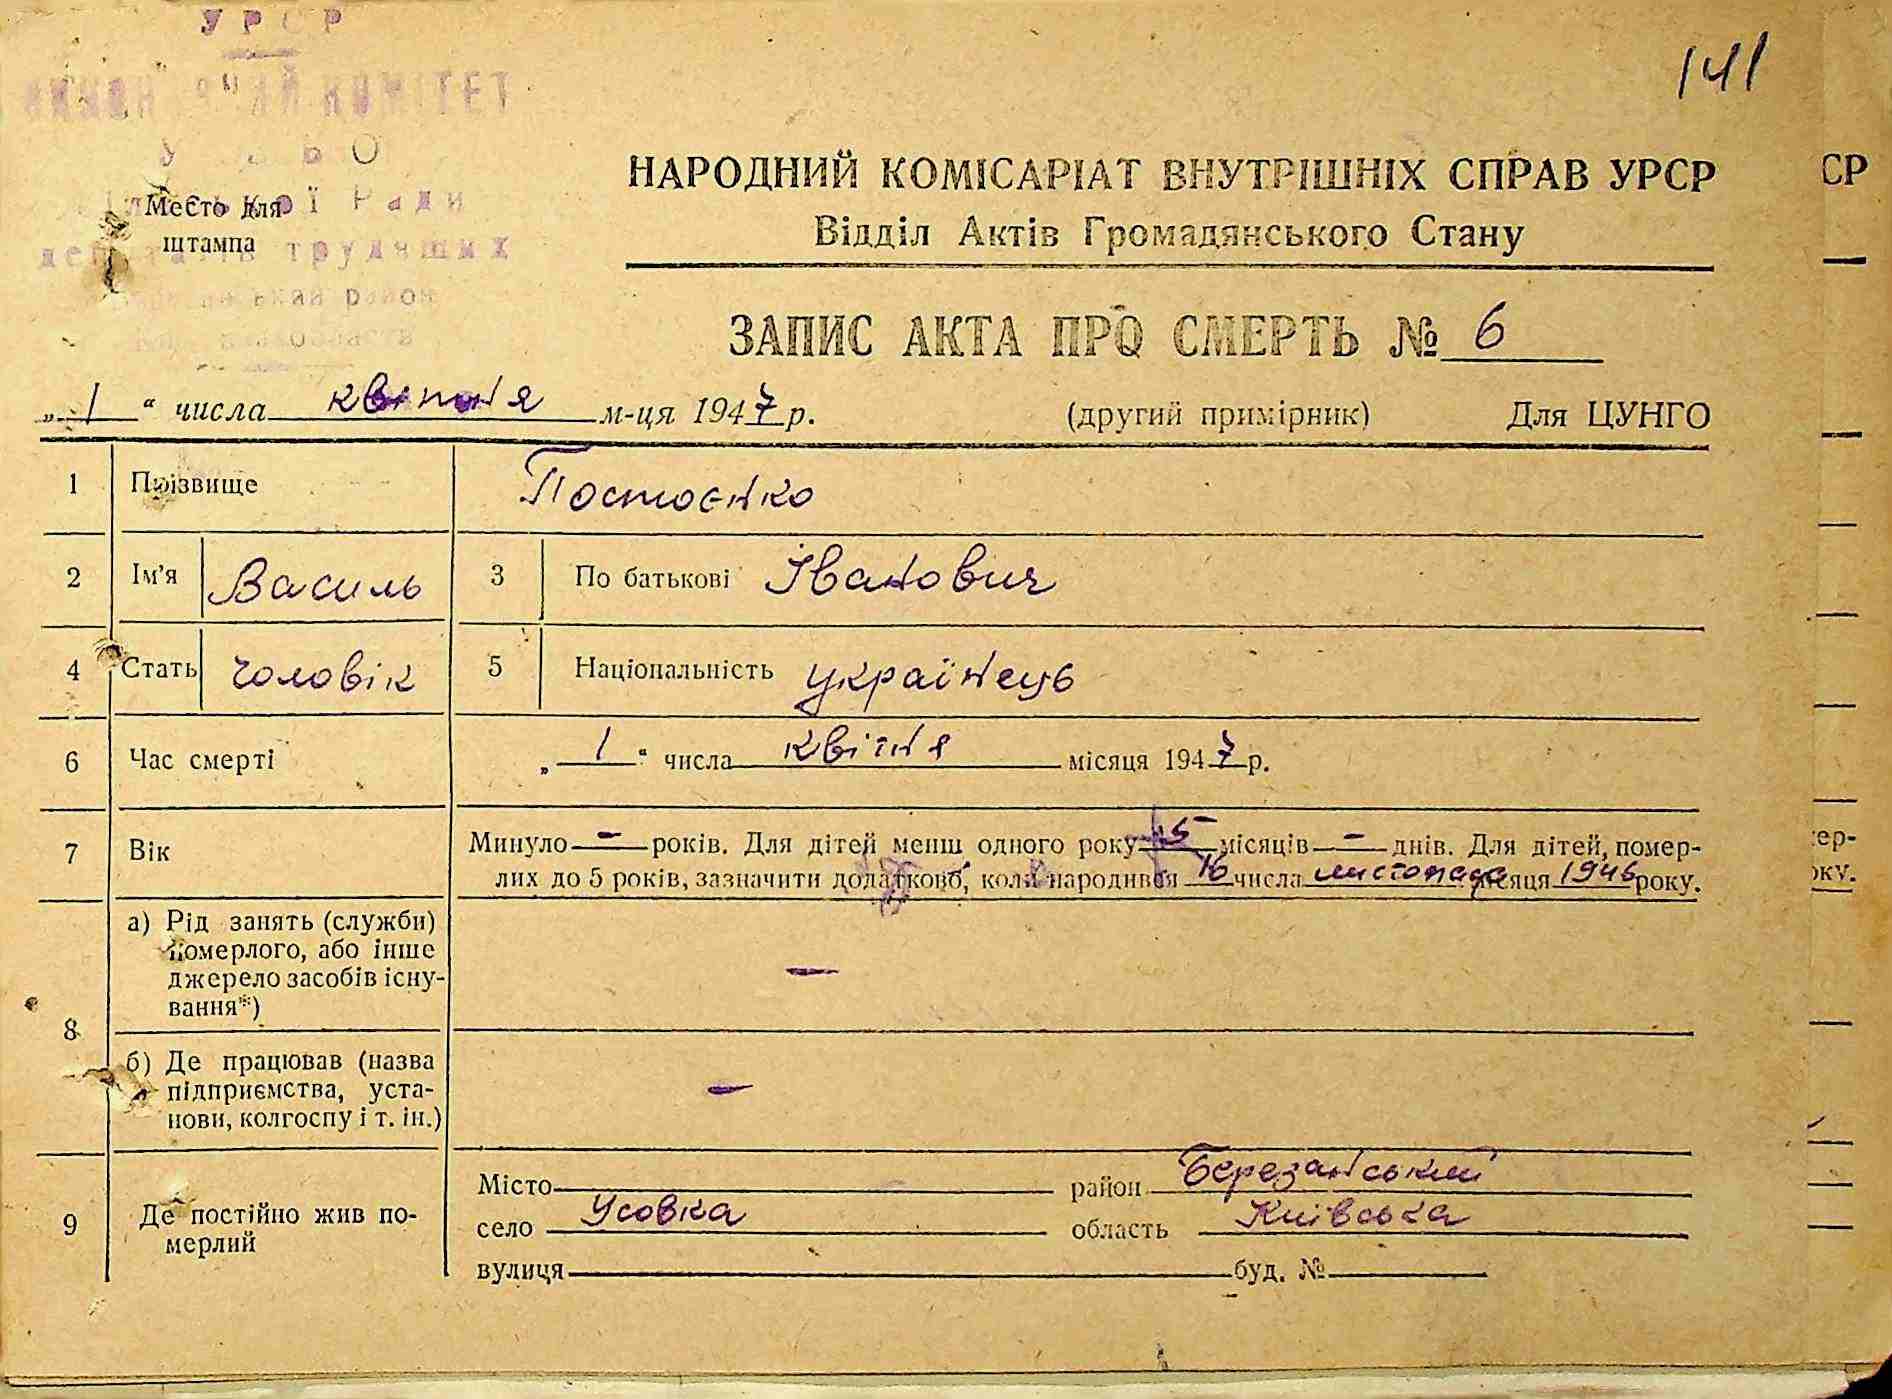 УРСР
141
КОМІТЕТ
Ради
Место для
штампа
трудящих
район
НАРОДНИЙ КОМІСАРІАТ ВНУТРІШНІХ СПРАВ УРСР
СР
Відділ Актів Громадянського Стану
ЗАПИС АКТА ПРО СМЕРТЬ № 6
„ 1 “ числа квітня м-ця 1947 р. (другий примірник) Для ЦУНГО
1 Прізвище Постоєнко
2 Ім'я Василь 3 По батькові Іванович
4 Стать чоловік 5 Національність українець
6 Час смерті „ 1 “ числа квітня місяця 1947 р.
7 Вік Минуло - років. Для дітей менш одного року 5 місяців - днів. Для дітей, помер-
лих до 5 років, зазначити додатково, коли народився 16 числа листопада місяця 1946 року.
ер-
оку.
8 а) Рід занять (служби)
померлого, або інше
джерело засобів існу-
вання*) -
б) Де працював (назва
підприємства, уста-
нови, колгоспу і т. ін.) -
9 Де постійно жив по-
мерлий
Місто район Березанський
село Усовка область Київська
вулиця буд. №